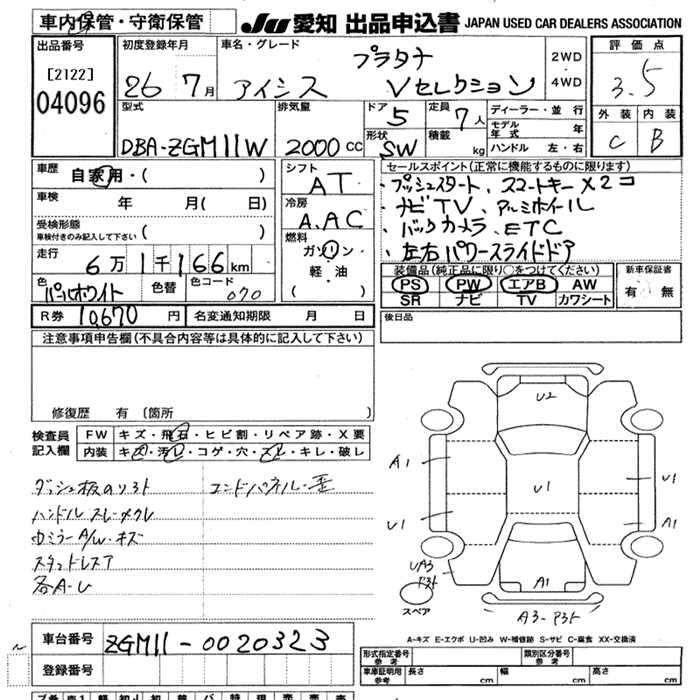 車内保管・守衛保管
JU 愛知 出品申込書 JAPAN USED CAR DEALERS ASSOCIATION
出品番号
[2122]
04096
初度登録年月
26 7月
車名・グレード
プラタナ
アイシス Vセレクション
2WD
・
4WD
評価点
3.5
外装 内装
C B
型式
DBA-ZGM11W
排気量
2000 CC
ドア 5
形状 SW
定員 7 人
積載 kg
ディーラー・並行
モデル年式 年
ハンドル 左・右
車歴
自家用・( )
車検
年 月( 日)
受検形態
車検付きのみ記入して下さい ( )
走行
6万1千166km
色
パールホワイト
色替
色コード
070
シフト
AT
冷房
A.AC
燃料
ガソリン・
軽・油
( )
R券 10,670 円 名変通知期限 月 日
セールスポイント(正常に機能するものに限ります)
・プッシュスタート、スマートキー×2コ
・ナビTV、アルミホイール
・バックカメラ、ETC
・左右パワースライドドア
装備品(純正品に限り○をつけてください)
PS PW エアB AW
SR ナビ TV カワシート
新車保証書
有・無
後日品
注意事項申告欄(不具合内容等は具体的に記入して下さい)
修復歴 有(箇所 )
検査員
記入欄
FW キズ・飛石・ヒビ割・リペア跡・X要
内装 キズ・汚レ・コゲ・穴・スレ・キレ・破レ
ダッシュ板のリフト
エンドパネル・歪
ハンドル スレ・メクレ
スタッドレスア
各A・U
U2
A1
U1
U1
U1
A1
UA3
P3ｷﾄ
A1
スペア
A3-P3ｷﾄ
A-キズ E-エクボ U-凹み W-補修跡 S-サビ C-腐食 XX-交換済
車台番号 ZGM11-0020323
登録番号
形式指定番号
参考
類別区分番号
参考
車庫証明用
参考
長さ cm 幅 cm 高さ cm